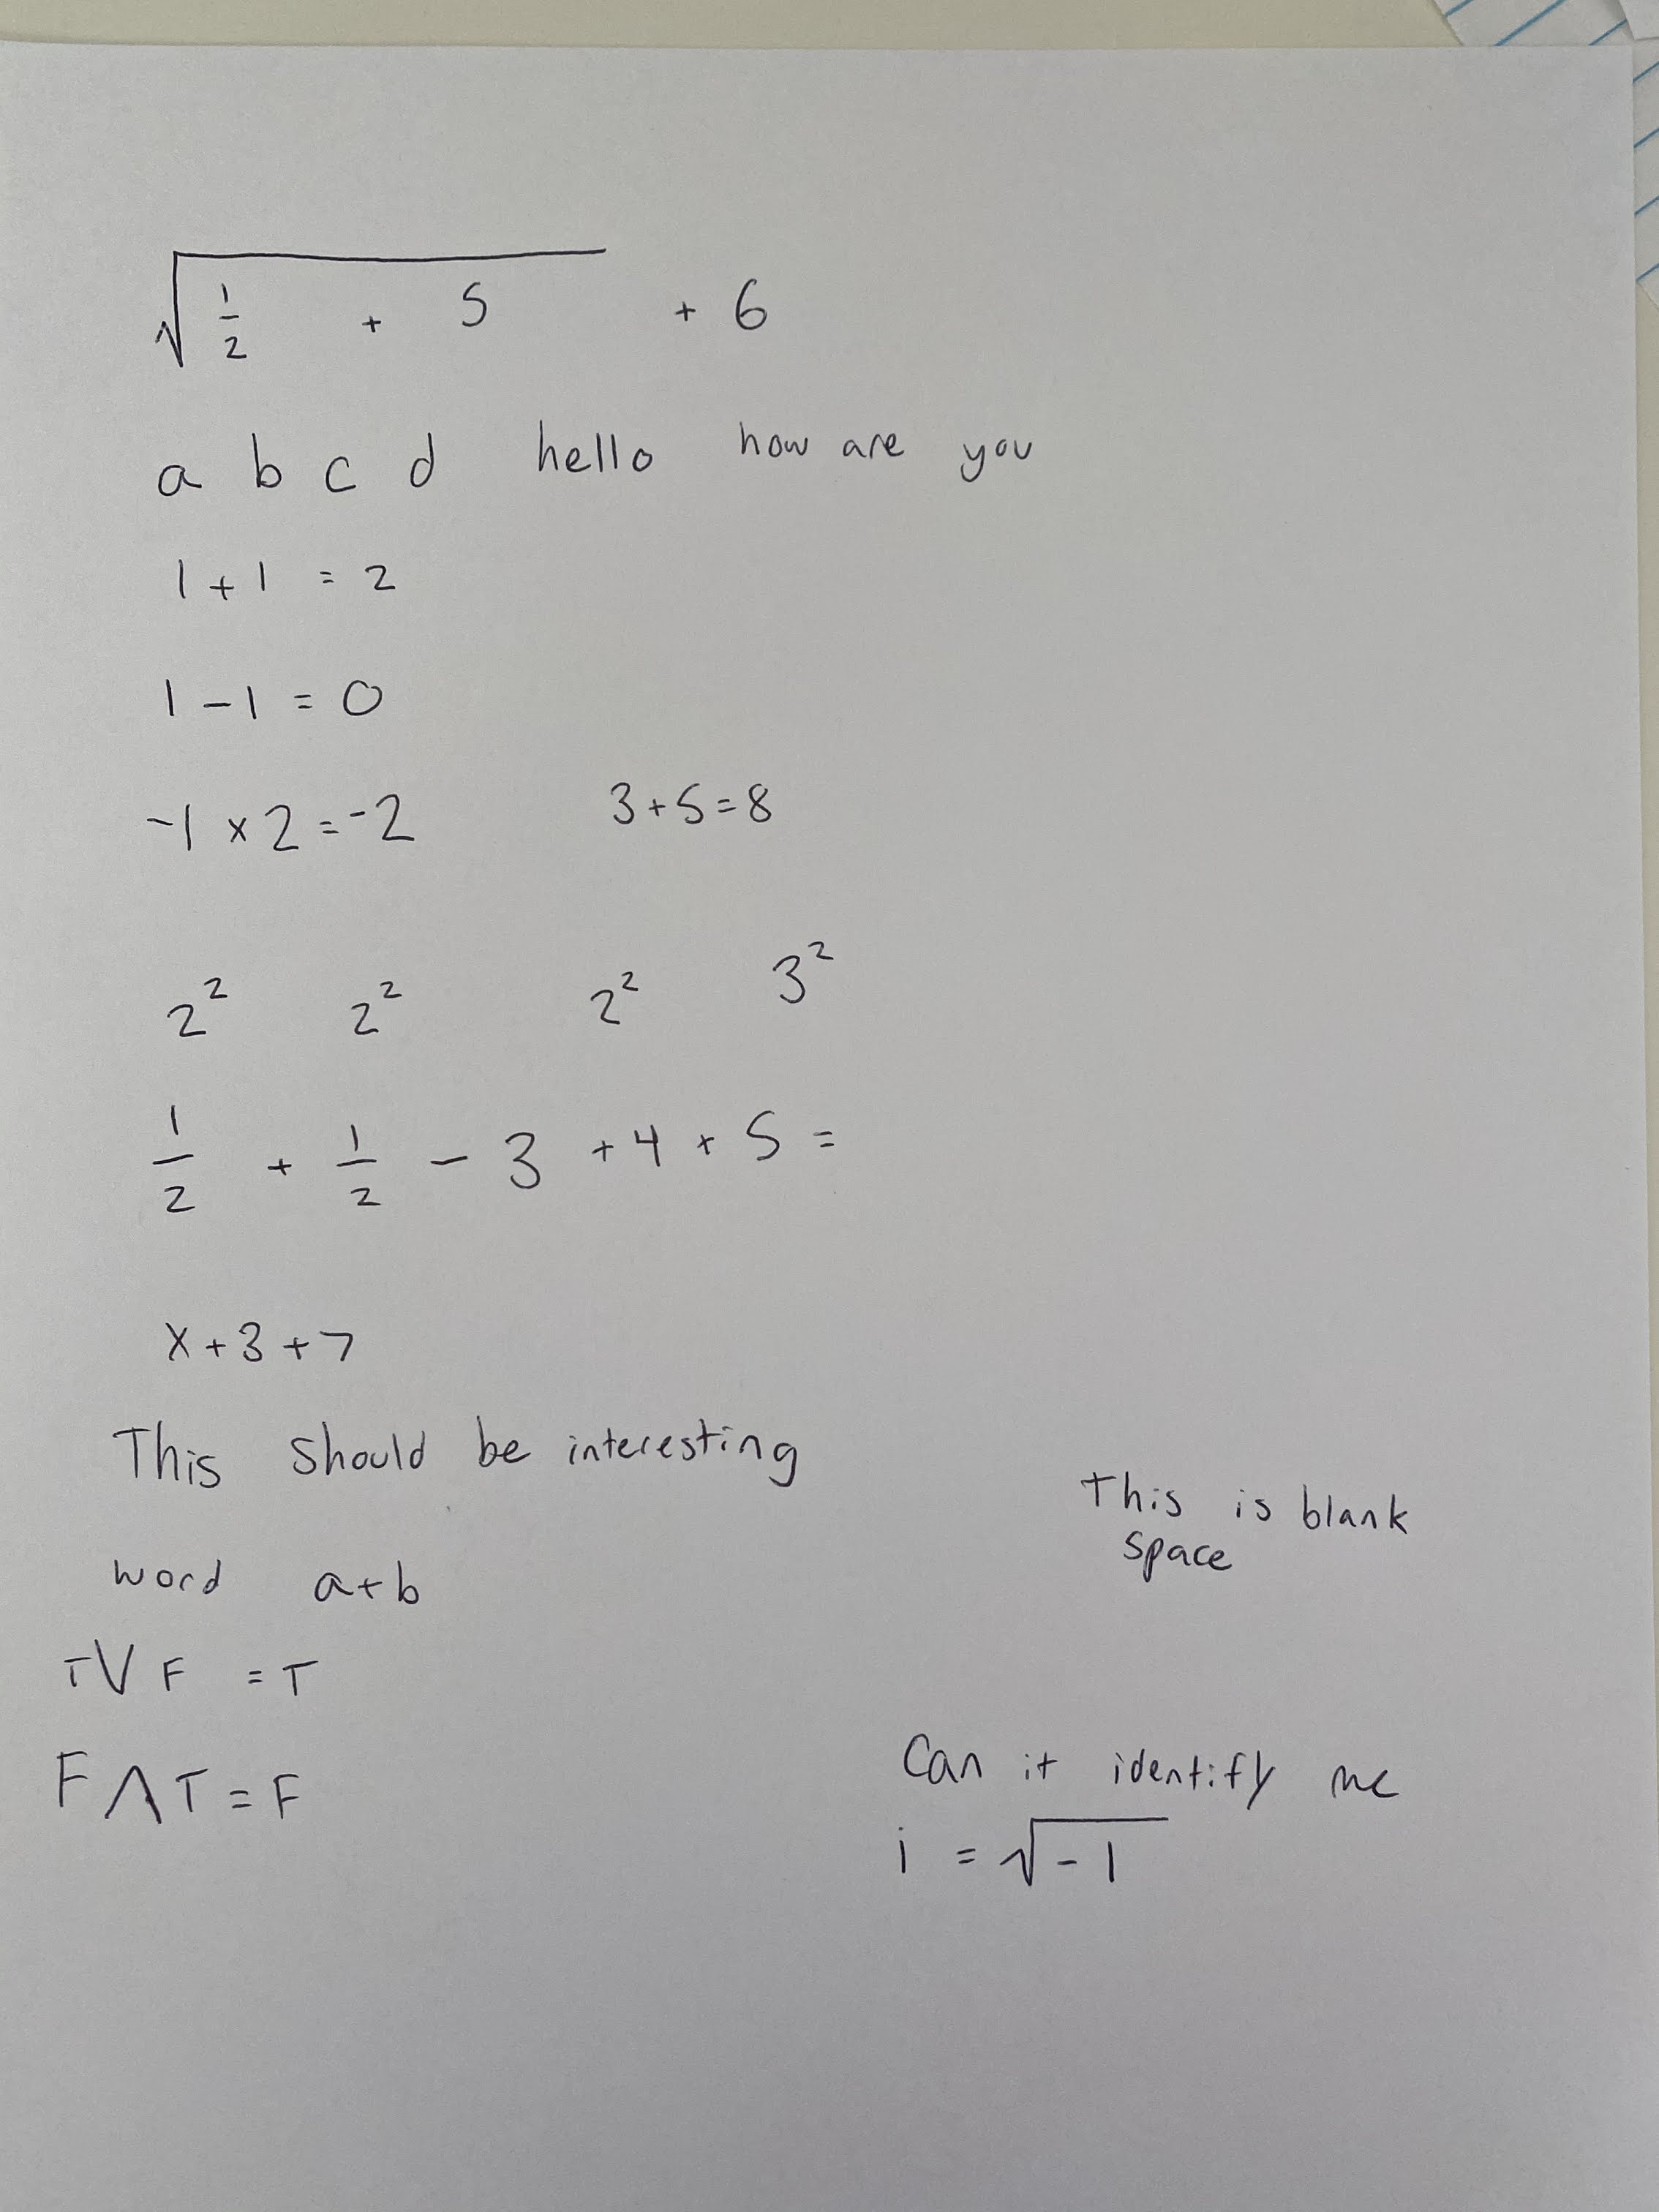 √(1/2 + 5) + 6
a b c d hello how are you
1 + 1 = 2
1 - 1 = 0
-1 × 2 = -2 3+5=8
2² 2² 2² 3²
1/2 + 1/2 - 3 + 4 + 5 =
x + 3 + 7
This should be interesting
This is blank
space
word a+b
T V F = T
F Λ T = F
Can it identify me
i = √-1